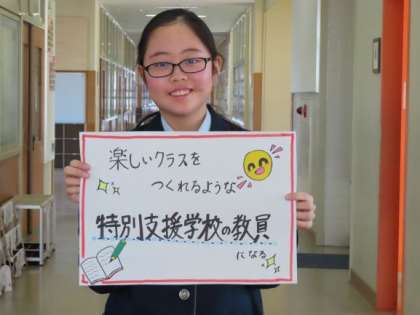 楽しいクラスを
つくれるような
特別支援学校の教員
になる